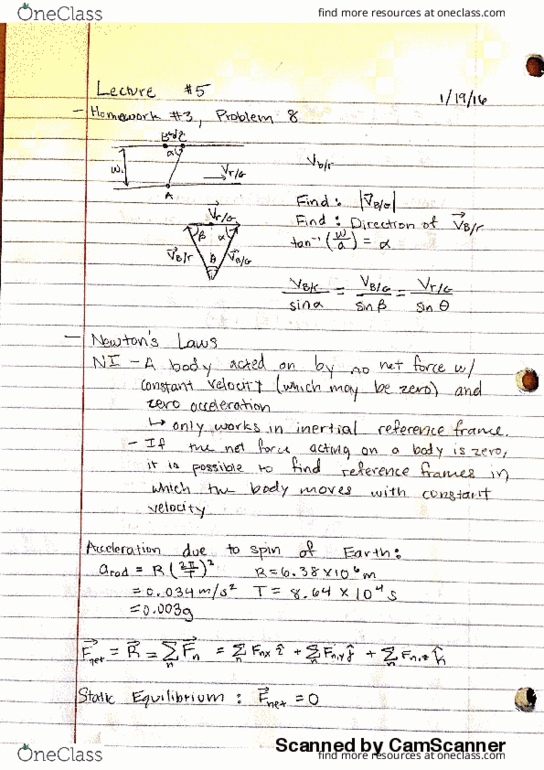 OneClass
find more resources at oneclass.com
Lecture #5
1/19/16
- Homework #3, Problem 8
B d C
α
w
V r/G
A
V B/r
V r/G
Find: |V B/G|
Find: Direction of V B/r
tan⁻¹(w/a) = α
β α
V B/r θ V B/G
V B/r / sin α = V B/G / sin β = V r/G / sin θ
- Newton's Laws
NI - A body acted on by no net force w/
constant velocity (which may be zero) and
zero acceleration
↳ only works in inertial reference frame.
- If the net force acting on a body is zero,
it is possible to find reference frames in
which the body moves with constant
velocity
Acceleration due to spin of Earth:
a rad = R(2π/T)² R = 6.38 × 10⁶ m
= 0.034 m/s² T = 8.64 × 10⁴ s
= 0.003g
F net = R = Σ n F n = Σ n F nx î + Σ n F n,y ĵ + Σ n F n,z k̂
Static Equilibrium: F net = 0
Scanned by CamScanner
OneClass
find more resources at oneclass.com